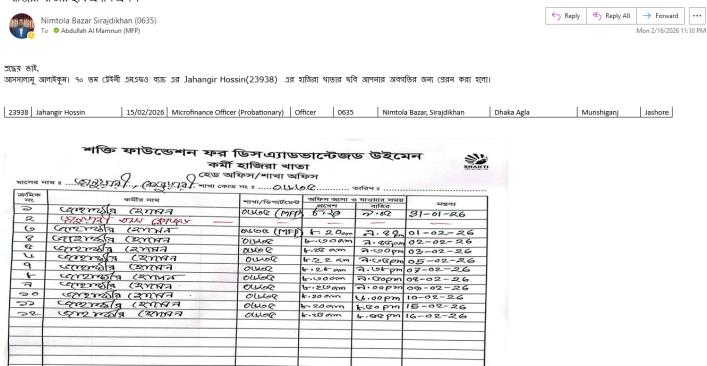 Nimtola Bazar Sirajdikhan (0635)
To Abdullah Al Mamnun (MFP)
Reply Reply All Forward
Mon 2/16/2026 11:10 PM
শ্রদ্ধেয় ভাই,
আসসালামু আলাইকুম। ৭০ তম ট্রেইনী এমএফও ব্যাচ এর Jahangir Hossin(23938) এর হাজিরা খাতার ছবি আপনার অবগতির জন্য প্রেরন করা হলো।
23938 Jahangir Hossin 15/02/2026 Microfinance Officer (Probationary) Officer 0635 Nimtola Bazar, Sirajdikhan Dhaka Agla Munshiganj Jashore
শক্তি ফাউন্ডেশন ফর ডিসএ্যাডভান্টেজড উইমেন
কর্মী হাজিরা খাতা
হেড অফিস/শাখা অফিস
SHAKTI
মাসের নাম : জানুয়ারী, ফেব্রুয়ারী শাখা কোড নং : ০৬৩৫ তারিখ :
ক্রমিক নং কর্মীর নাম শাখা/ডিপার্টমেন্ট অফিসে আসা ও যাওয়ার সময় মন্তব্য
প্রবেশ বাহির
১ জাহাঙ্গীর হোসেন ০৬৩৫ (MFP) 31-01-26
২
৩ জাহাঙ্গীর হোসেন ০৬৩৫ (MFP) ৮.২০am 01-02-26
৪ জাহাঙ্গীর হোসেন ০৬৩৫ ৮.৩০am 02-02-26
৫ জাহাঙ্গীর হোসেন ০৬৩৫ 03-02-26
৬ জাহাঙ্গীর হোসেন ০৬৩৫ ৮.২২am 05-02-26
৭ জাহাঙ্গীর হোসেন ০৬৩৫ 07-02-26
৮ জাহাঙ্গীর হোসেন ০৬৩৫ ৮.৩০am 08-02-26
৯ জাহাঙ্গীর হোসেন ০৬৩৫ ৯.০০pm 09-02-26
১০ জাহাঙ্গীর হোসেন ০৬৩৫ ৮.২০am ৬.০০pm 10-02-26
১১ জাহাঙ্গীর হোসেন ০৬৩৫ 15-02-26
১২ জাহাঙ্গীর হোসেন ০৬৩৫ 16-02-26